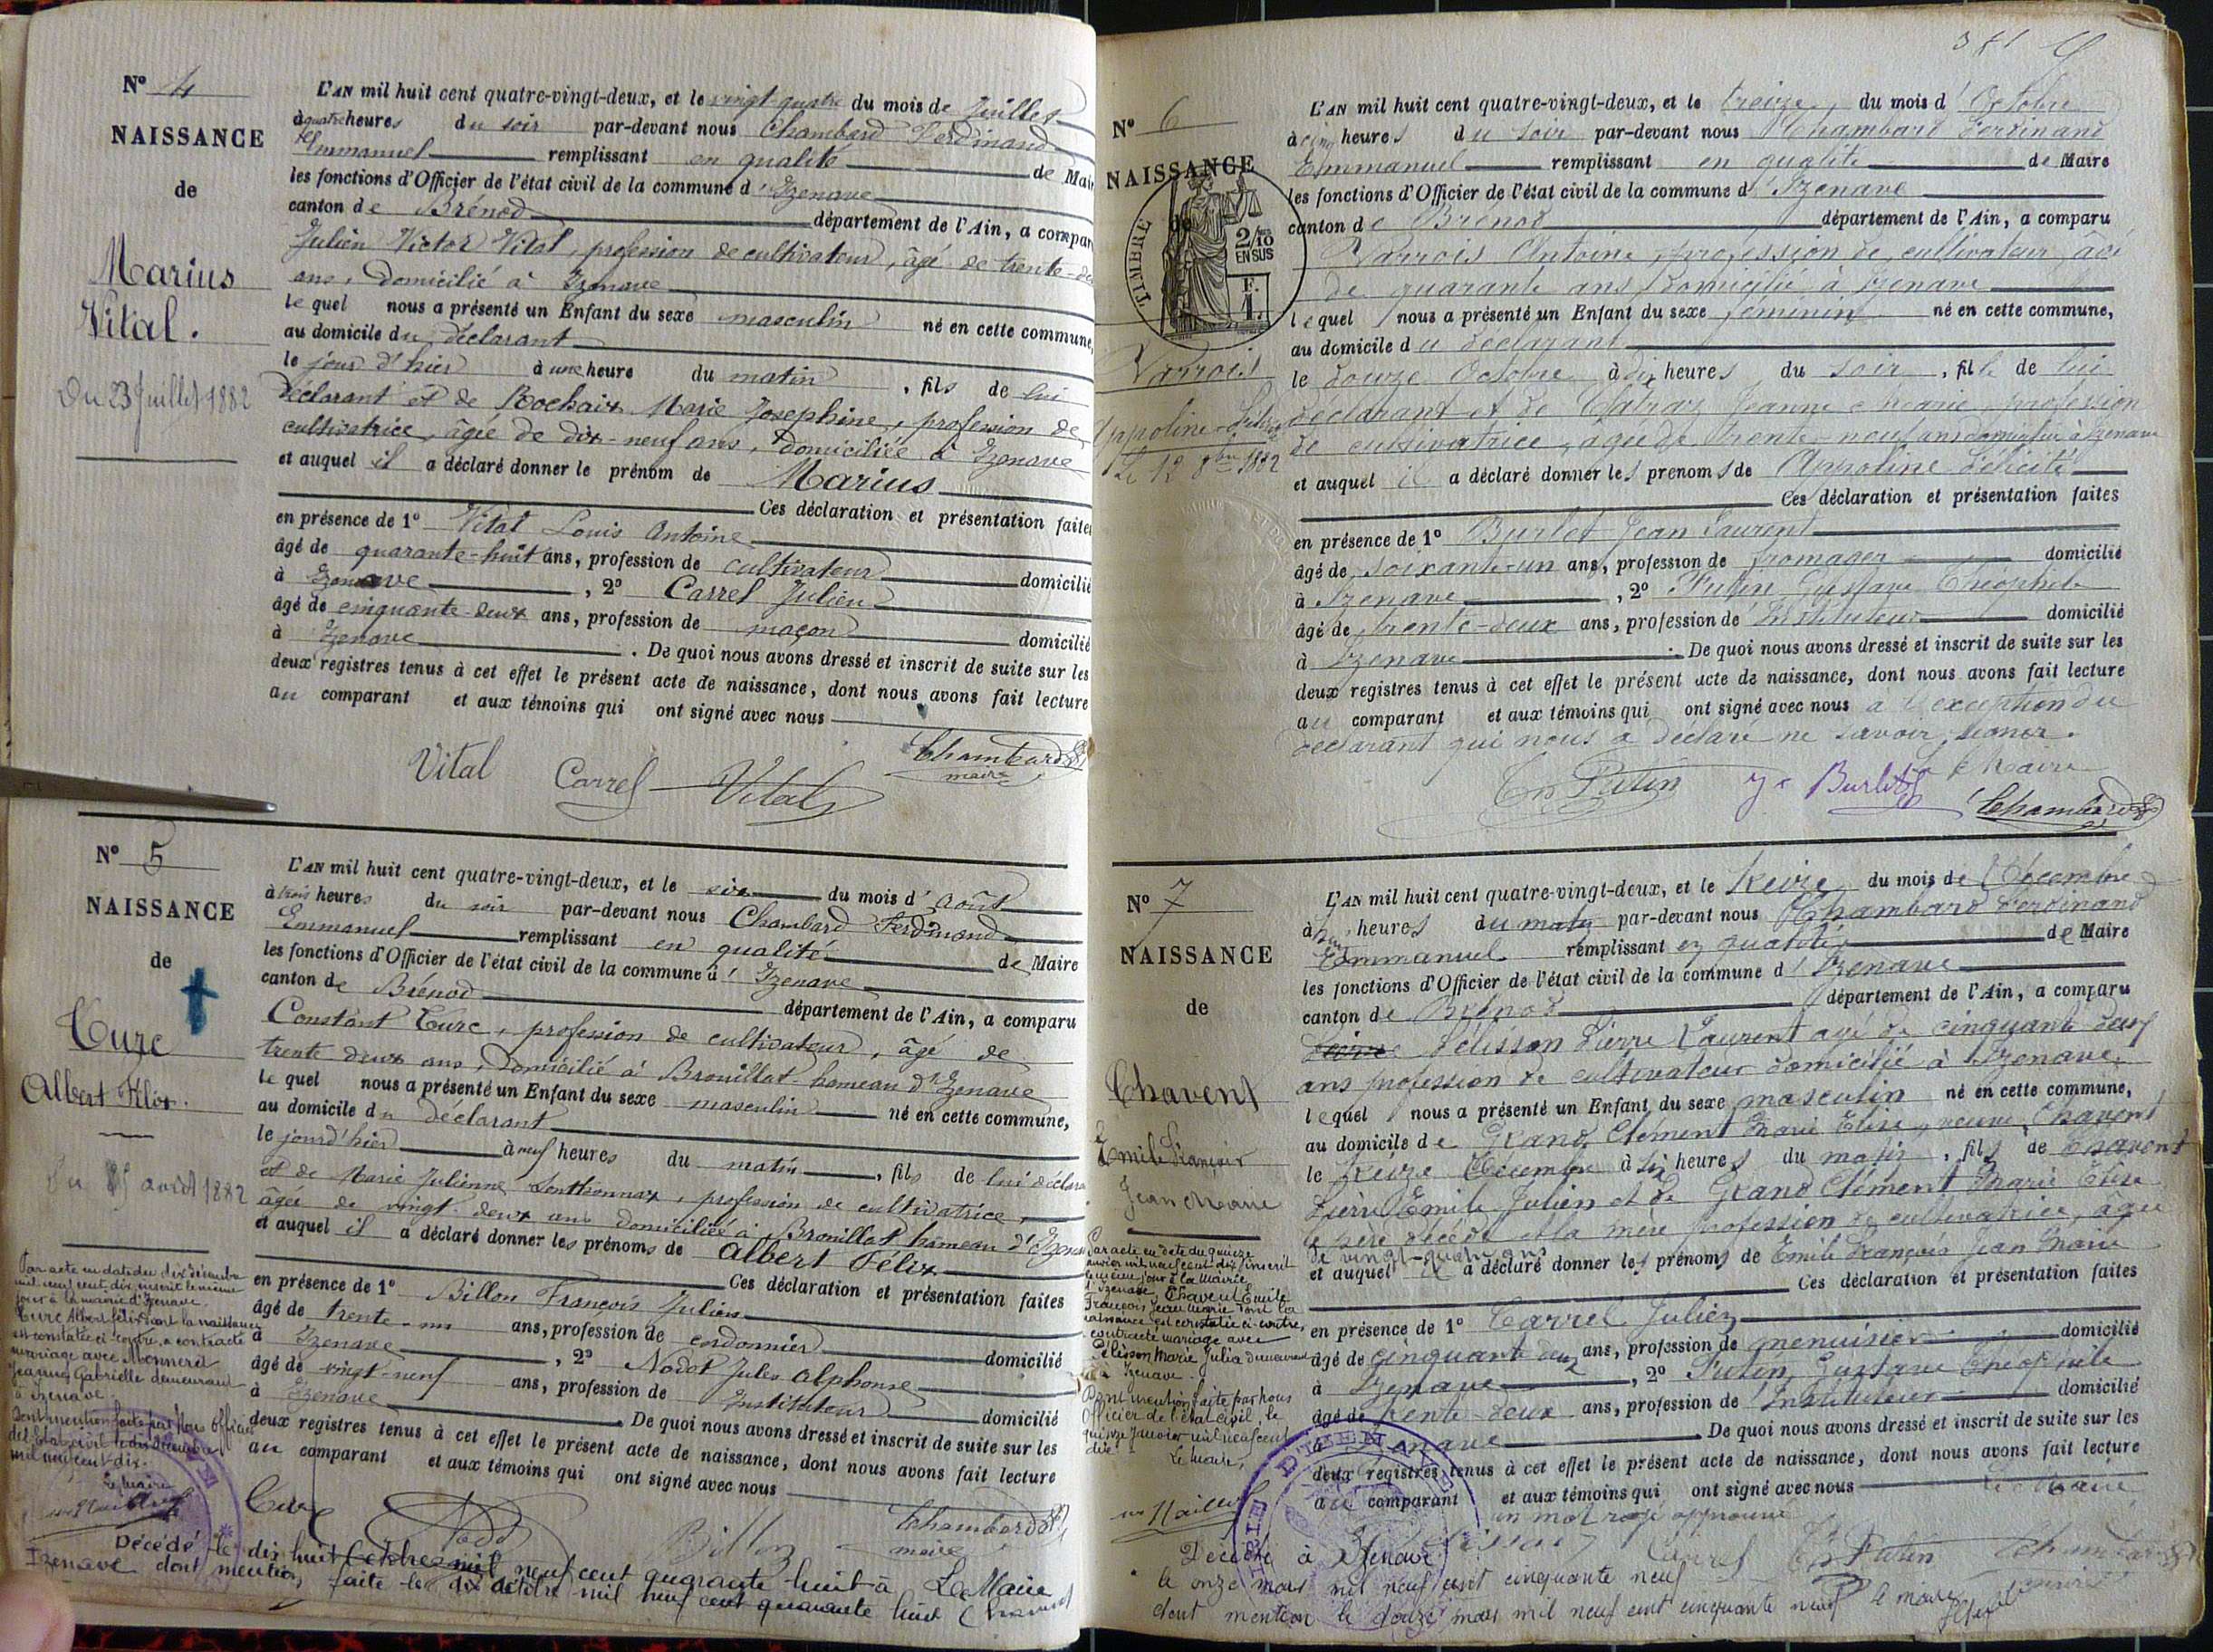 N° 4
NAISSANCE
de
Marius
Vital.
Du 23 Juillet 1882
L'AN mil huit cent quatre-vingt-deux, et le vingt-quatre du mois de Juillet
à quatre heures du soir par-devant nous Chambard Ferdinand
Emmanuel remplissant en qualité de Mair
les fonctions d'Officier de l'état civil de la commune d'Izenave
canton de Brénod département de l'Ain, a compar
Julien Victor Vital, profession de cultivateur, âgé de trente-de
ans, domicilié à Izenave
lequel nous a présenté un Enfant du sexe masculin né en cette commune,
au domicile du déclarant
le jour d'hier à une heure du matin, fils de lui
déclarant et de Rochaix Marie Josephine, profession de
cultivatrice, âgée de dix-neuf ans, domiciliée à Izenave
et auquel il a déclaré donner le prénom de Marius
Ces déclaration et présentation faites
en présence de 1° Vital Louis Antoine
âgé de quarante-huit ans, profession de cultivateur domicilié
à Izenave, 2° Carrel Julien
âgé de cinquante-deux ans, profession de maçon domicilié
à Izenave. De quoi nous avons dressé et inscrit de suite sur les
deux registres tenus à cet effet le présent acte de naissance, dont nous avons fait lecture
au comparant et aux témoins qui ont signé avec nous
Vital Carrel Vital Chambard
maire
N° 5
NAISSANCE
de
Turc
Albert Félix.
Du 5 août 1882
L'AN mil huit cent quatre-vingt-deux, et le six du mois d'Août
à trois heures du soir par-devant nous Chambard Ferdinand
Emmanuel remplissant en qualité de Maire
les fonctions d'Officier de l'état civil de la commune d'Izenave
canton de Brénod département de l'Ain, a comparu
Constant Turc, profession de cultivateur, âgé de
trente deux ans, domicilié à Brouillat hameau d'Izenave
lequel nous a présenté un Enfant du sexe masculin né en cette commune,
au domicile du déclarant
le jour d'hier à neuf heures du matin, fils de lui déclara
et de Marie Julienne Sonthonnax, profession de cultivatrice,
âgée de vingt-deux ans domiciliée à Brouillat hameau d'Izena
et auquel il a déclaré donner les prénoms de Albert Félix
Ces déclaration et présentation faites
en présence de 1° Billon François Julien
âgé de trente-un ans, profession de cordonnier domicilié
à Izenave, 2° Nodot Jules Alphonse
âgé de vingt-neuf ans, profession de Instituteur domicilié
à Izenave. De quoi nous avons dressé et inscrit de suite sur les
deux registres tenus à cet effet le présent acte de naissance, dont nous avons fait lecture
au comparant et aux témoins qui ont signé avec nous
Par acte en date du dix décembre
mil neuf cent dix, inscrit le même
jour à la mairie d'Izenave,
Turc Albert Félix dont la naissance
est constatée ci-contre, a contracté
mariage avec Monneret
Jeanne Gabrielle demeurant
à Izenave.
Dont mention faite par Nous Officier
de l'Etat civil le dix décembre
mil neuf cent dix.
Le Maire
Turc Nodot Billon Chambard
maire
Décédé le dix huit octobre mil neuf cent quarante huit à
Izenave dont mention faite le dix octobre mil neuf cent quarante huit
Le Maire
N° 6
NAISSANCE
de
TIMBRE
2/10
EN SUS
F.
1.
Varrois
Appoline
Le 12 8bre 1882
L'AN mil huit cent quatre-vingt-deux, et le treize, du mois d'Octobre
à cinq heures du soir par-devant nous Chambard Ferdinand
Emmanuel remplissant en qualité de Maire
les fonctions d'Officier de l'état civil de la commune d'Izenave
canton de Brénod département de l'Ain, a comparu
Varrois Antoine, profession de cultivateur, âgé
de quarante ans, domicilié à Izenave
lequel nous a présenté un Enfant du sexe féminin né en cette commune,
au domicile du déclarant
le douze Octobre à dix heures du soir, fille de lui
déclarant et de Jeanne Marie, profession
de cultivatrice, âgée de trente-neuf ans domiciliée à Izenave
et auquel il a déclaré donner les prénoms de Appoline Félicité
Ces déclaration et présentation faites
en présence de 1° Burlet Jean Laurent
âgé de soixante-un ans, profession de fromager domicilié
à Izenave, 2° Putin Gustave Théophile
âgé de trente-deux ans, profession de Instituteur domicilié
à Izenave. De quoi nous avons dressé et inscrit de suite sur les
deux registres tenus à cet effet le présent acte de naissance, dont nous avons fait lecture
au comparant et aux témoins qui ont signé avec nous à l'exception du
déclarant qui nous a déclaré ne savoir signer.
Putin Burlet Le Maire
Chambard
N° 7
NAISSANCE
de
Chavent
Emile François
Jean Marie
L'AN mil huit cent quatre-vingt-deux, et le treize du mois de Décembre
à heures du matin par-devant nous Chambard Ferdinand
Emmanuel remplissant en qualité de Maire
les fonctions d'Officier de l'état civil de la commune d'Izenave
canton de Brénod département de l'Ain, a comparu
Pélisson Pierre Laurent agé de cinquante deux
ans profession de cultivateur domicilié à Izenave,
lequel nous a présenté un Enfant du sexe masculin né en cette commune,
au domicile de Grand Clément Marie Elise, veuve Chavent
le treize Décembre à six heures du matin, fils de Chavent
Pierre Emile Julien et de Grand Clément Marie Elise
le père décédé et la mère profession de cultivatrice, âgée
de vingt-quatre ans
et auquel il a déclaré donner les prénoms de Emile François Jean Marie
Ces déclaration et présentation faites
en présence de 1° Carrel Julien
âgé de cinquante deux ans, profession de menuisier domicilié
à Izenave, 2° Putin Gustave Théophile
âgé de trente-deux ans, profession de Instituteur domicilié
à Izenave. De quoi nous avons dressé et inscrit de suite sur les
deux registres tenus à cet effet le présent acte de naissance, dont nous avons fait lecture
au comparant et aux témoins qui ont signé avec nous
un mot rayé approuvé Le Maire
Par acte en date du quinze
janvier mil neuf cent dix, inscrit
le même jour à la Mairie
d'Izenave, Chavent Emile
François Jean Marie dont la
naissance est constatée ci-contre,
a contracté mariage avec
Pélisson Marie Julia demeurant
à Izenave.
Dont mention faite par nous
Officier de l'état civil, le
quinze janvier mil neuf cent
dix.
Le Maire,
Pélisson Carrel Putin Chambard
Décédé à Izenave
le onze mars mil neuf cent cinquante neuf
dont mention le douze mars mil neuf cent cinquante neuf le maire